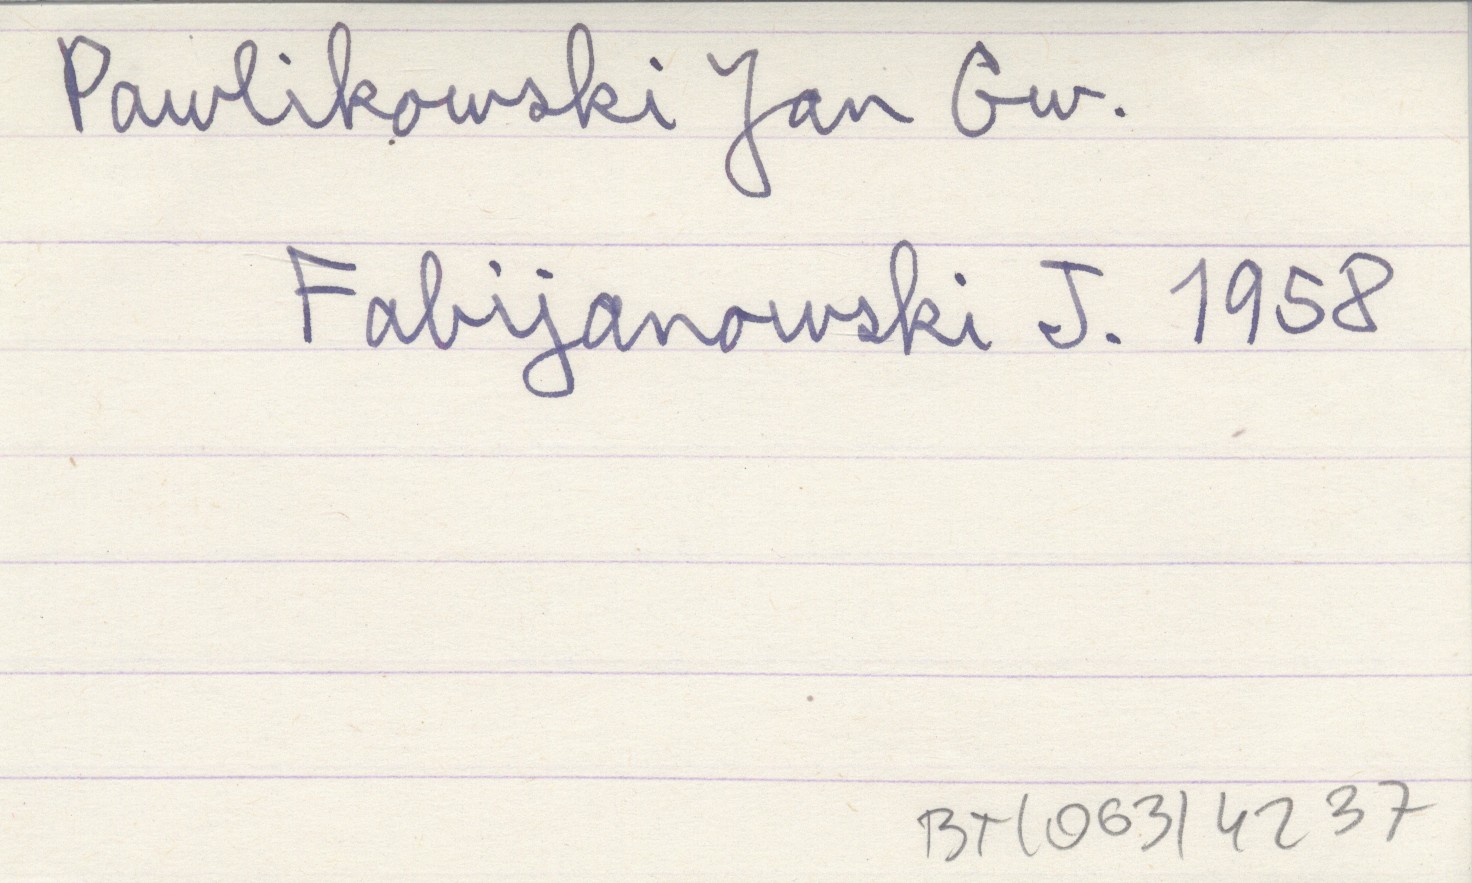 Pawlikowski Jan Gw.
Fabijanowski J. 1958
BT(063) 4237